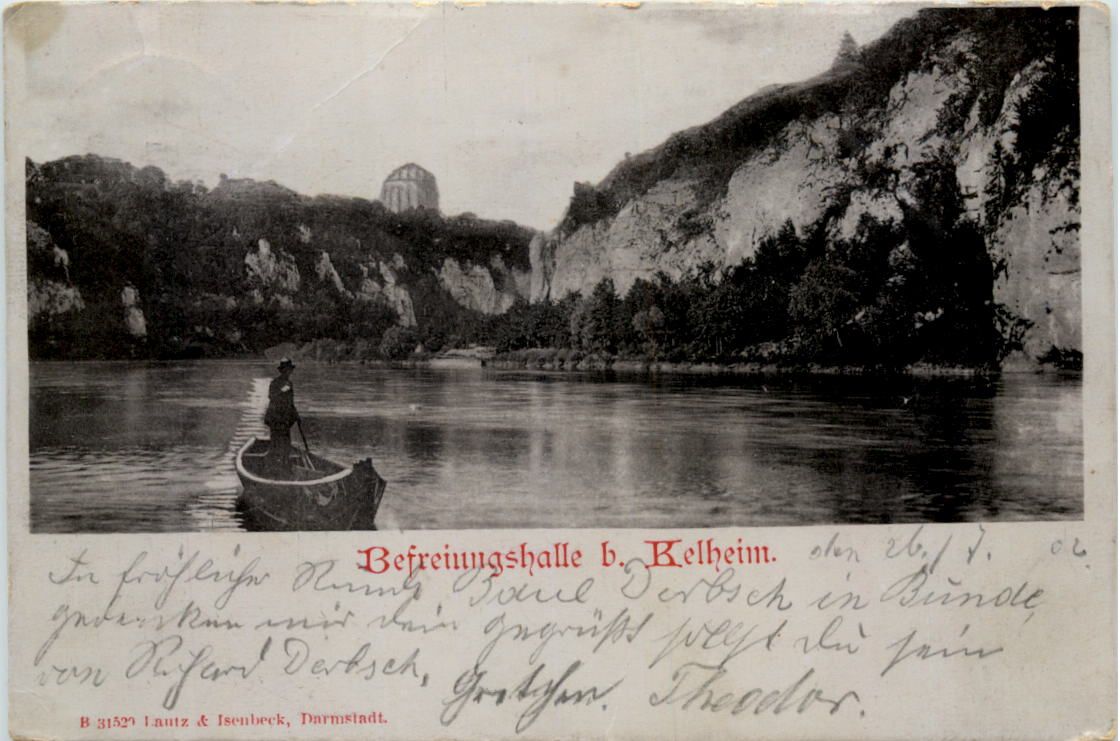 Befreiungshalle b. Kelheim.
den 26./7. 02.
In fröhlicher Runde Paul Derbsch in Bünde,
gedenken wir dein gegrüßt sollst Du sein
von Richard Derbsch, Gretchen. Theodor.
B 31529 Lautz & Isenbeck, Darmstadt.